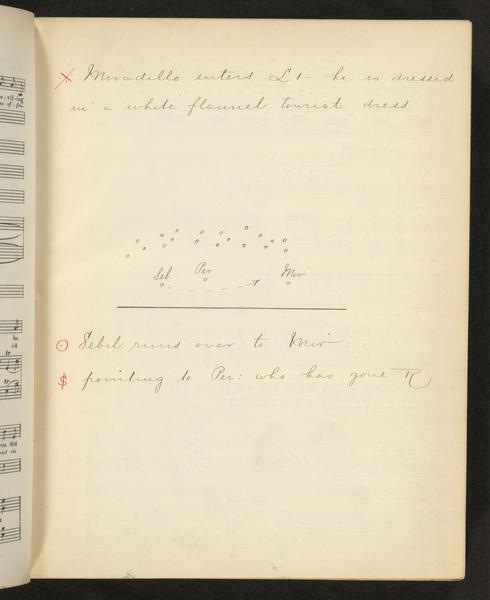 x Miradillo enters L 1 - he is dressed
in a white flannel tourist dress
Seb Per Mir
⊙ Sebil runs over to Mir:
$ pointing to Per: who has gone R